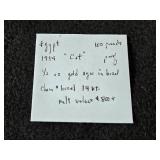 Egypt 100 pounds
1994 "Cat" proof
1/2 oz gold ages in bezel
Chain & bezel 14 kt.
melt value $800+